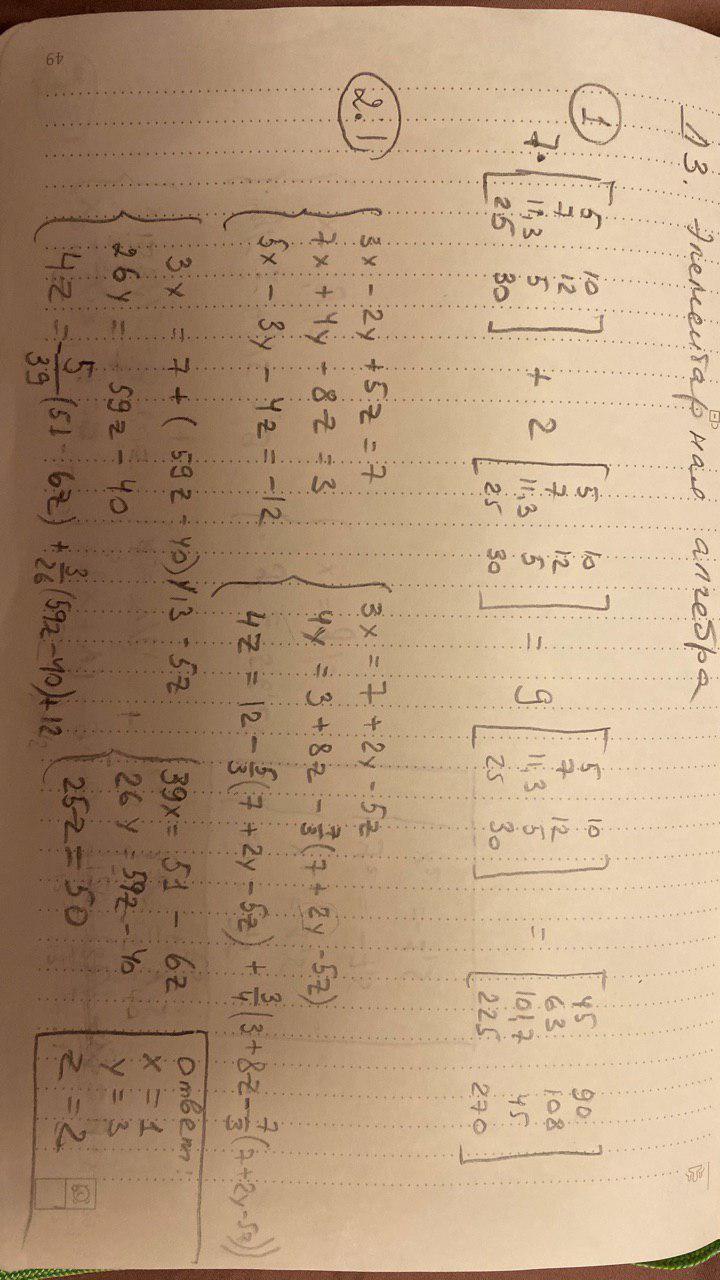 Л3. Элементарная алгебра
1
7· [5 10; 7 12; 11,3 5; 25 30] + 2 [5 10; 7 12; 11,3 5; 25 30] = 9 [5 10; 7 12; 11,3 5; 25 30] = [45 90; 63 108; 101,7 45; 225 270]
2.1
3x - 2y + 5z = 7
7x + 4y - 8z = 3
5x - 3y - 4z = -12
3x = 7 + 2y - 5z
4y = 3 + 8z - 7/3 (7 + 2y - 5z)
4z = 12 - 5/3 (7 + 2y - 5z) + 3/4 (3 + 8z - 7/3 (7 + 2y - 5z))
3x = 7 + (59z - 40)/13 - 5z
26y = 59z - 40
4z = -5/39 (51 - 6z) + 3/26 (59z - 40) + 12
39x = 51 - 6z
26y = 59z - 40
25z = 50
Ответ:
x = 1
y = 3
z = 2
49